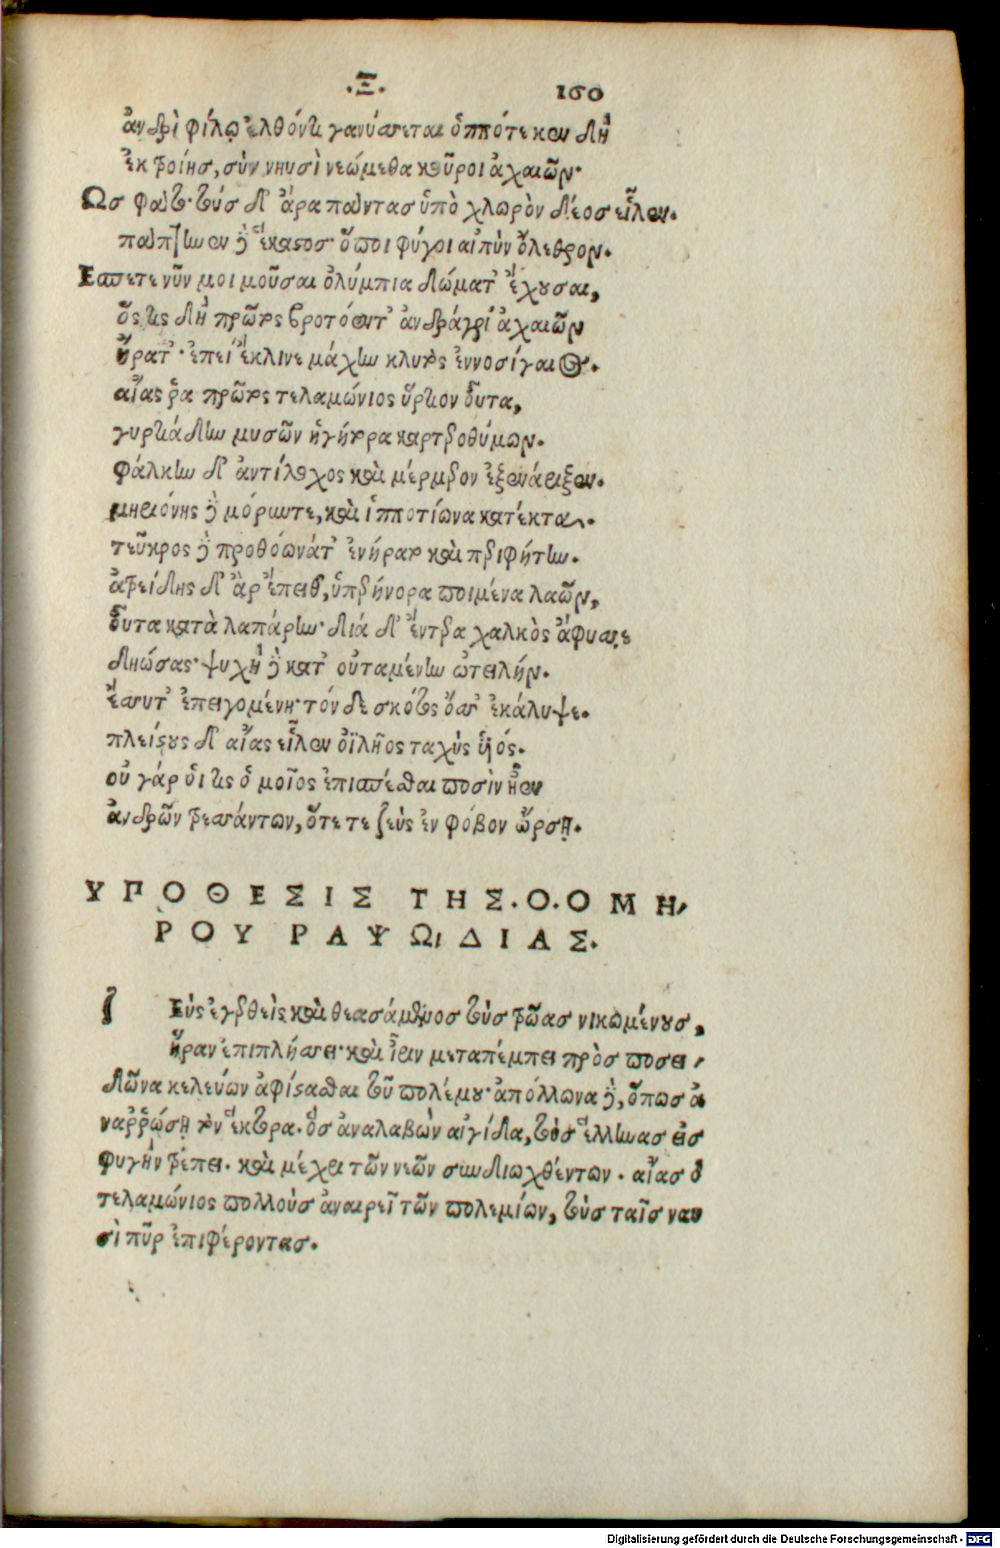 ·Ξ· 160
ἀνδρὶ φίλῳ ἐλθόντι γανύσεται ὁππότε κεν δὴ
ἐκ τροίης, σὺν νηυσὶ νεώμεθα κοῦροι ἀχαιῶν·
Ως φάτο· τοὺς δ' ἄρα πάντας ὑπὸ χλωρὸν δέος εἷλεν.
πάπτηνεν δὲ ἕκαστος ὅποι φύγοι αἰπὺν ὄλεθρον.
Εσπετε νῦν μοι μοῦσαι ὀλύμπια δώματ' ἔχουσαι,
ὅς τις δὴ πρῶτος βροτόεντ' ἀνδράγρι ἀχαιῶν
ἤρατ'· ἐπεί ἔκλινε μάχην κλυτὸς ἐννοσίγαιος.
αἴας ῥα πρῶτος τελαμώνιος ὕρτιον οὖτα,
γυρτιάδην μυσῶν ἡγήτορα καρτεροθύμων.
φάλκην δ' ἀντίλοχος καὶ μέρμερον ἐξενάριξεν.
μηριόνης δὲ μόρυντε, καὶ ἱπποτίωνα κατέκτα.
τεῦκρος δὲ προθόωνάτ' ἐνήρατο καὶ περιφήτην.
ἀτρείδης δ' ἂρ ἔπειθ', ὑπερήνορα ποιμένα λαῶν,
οὖτα κατὰ λαπάρην· διὰ δ' ἔντερα χαλκὸς ἄφυσσε
δηώσας· ψυχὴ δὲ κατ' οὐταμένην ὠτειλήν.
ἔσσυτ' ἐπειγομένη· τόν δε σκότος ὄσσ' ἐκάλυψε.
πλείστους δ' αἴας εἷλεν ὀϊλῆος ταχὺς υἱός.
οὐ γάρ οἱ τις ὁμοῖος ἐπισπέσθαι ποσὶν ἦεν
ἀνδρῶν τρεσσάντων, ὅτε τε ζεὺς ἐν φόβον ὦρσῃ.
ΥΠΟΘΕΣΙΣ ΤΗΣ.Ο.ΟΜΗ-
ΡΟΥ ΡΑΨΩΙΔΙΑΣ.
ζ Εὺς ἐγερθεὶς καὶ θεασάμενος τοὺς τρῶας νικωμένους,
ἥραν ἐπιπλήσσει· καὶ ἶριν μεταπέμπει πρὸς ποσει-
δῶνα κελεύων ἀφίστασθαι τοῦ πολέμου· ἀπόλλωνα δὲ, ὅπως ἀ
ναῤῥώσῃ τὸν ἕκτορα. ὃς ἀναλαβὼν αἰγίδα, τοὺς ἕλληνας εἰς
φυγὴν τρέπει. καὶ μέχρι τῶν νεῶν συνδιωχθέντων. αἴας ὁ
τελαμώνιος πολλοὺς ἀναιρεῖ τῶν πολεμίων, τοὺς ταῖς ναυ
σὶ πῦρ ἐπιφέροντας.
Digitalisierung gefördert durch die Deutsche Forschungsgemeinschaft - DFG